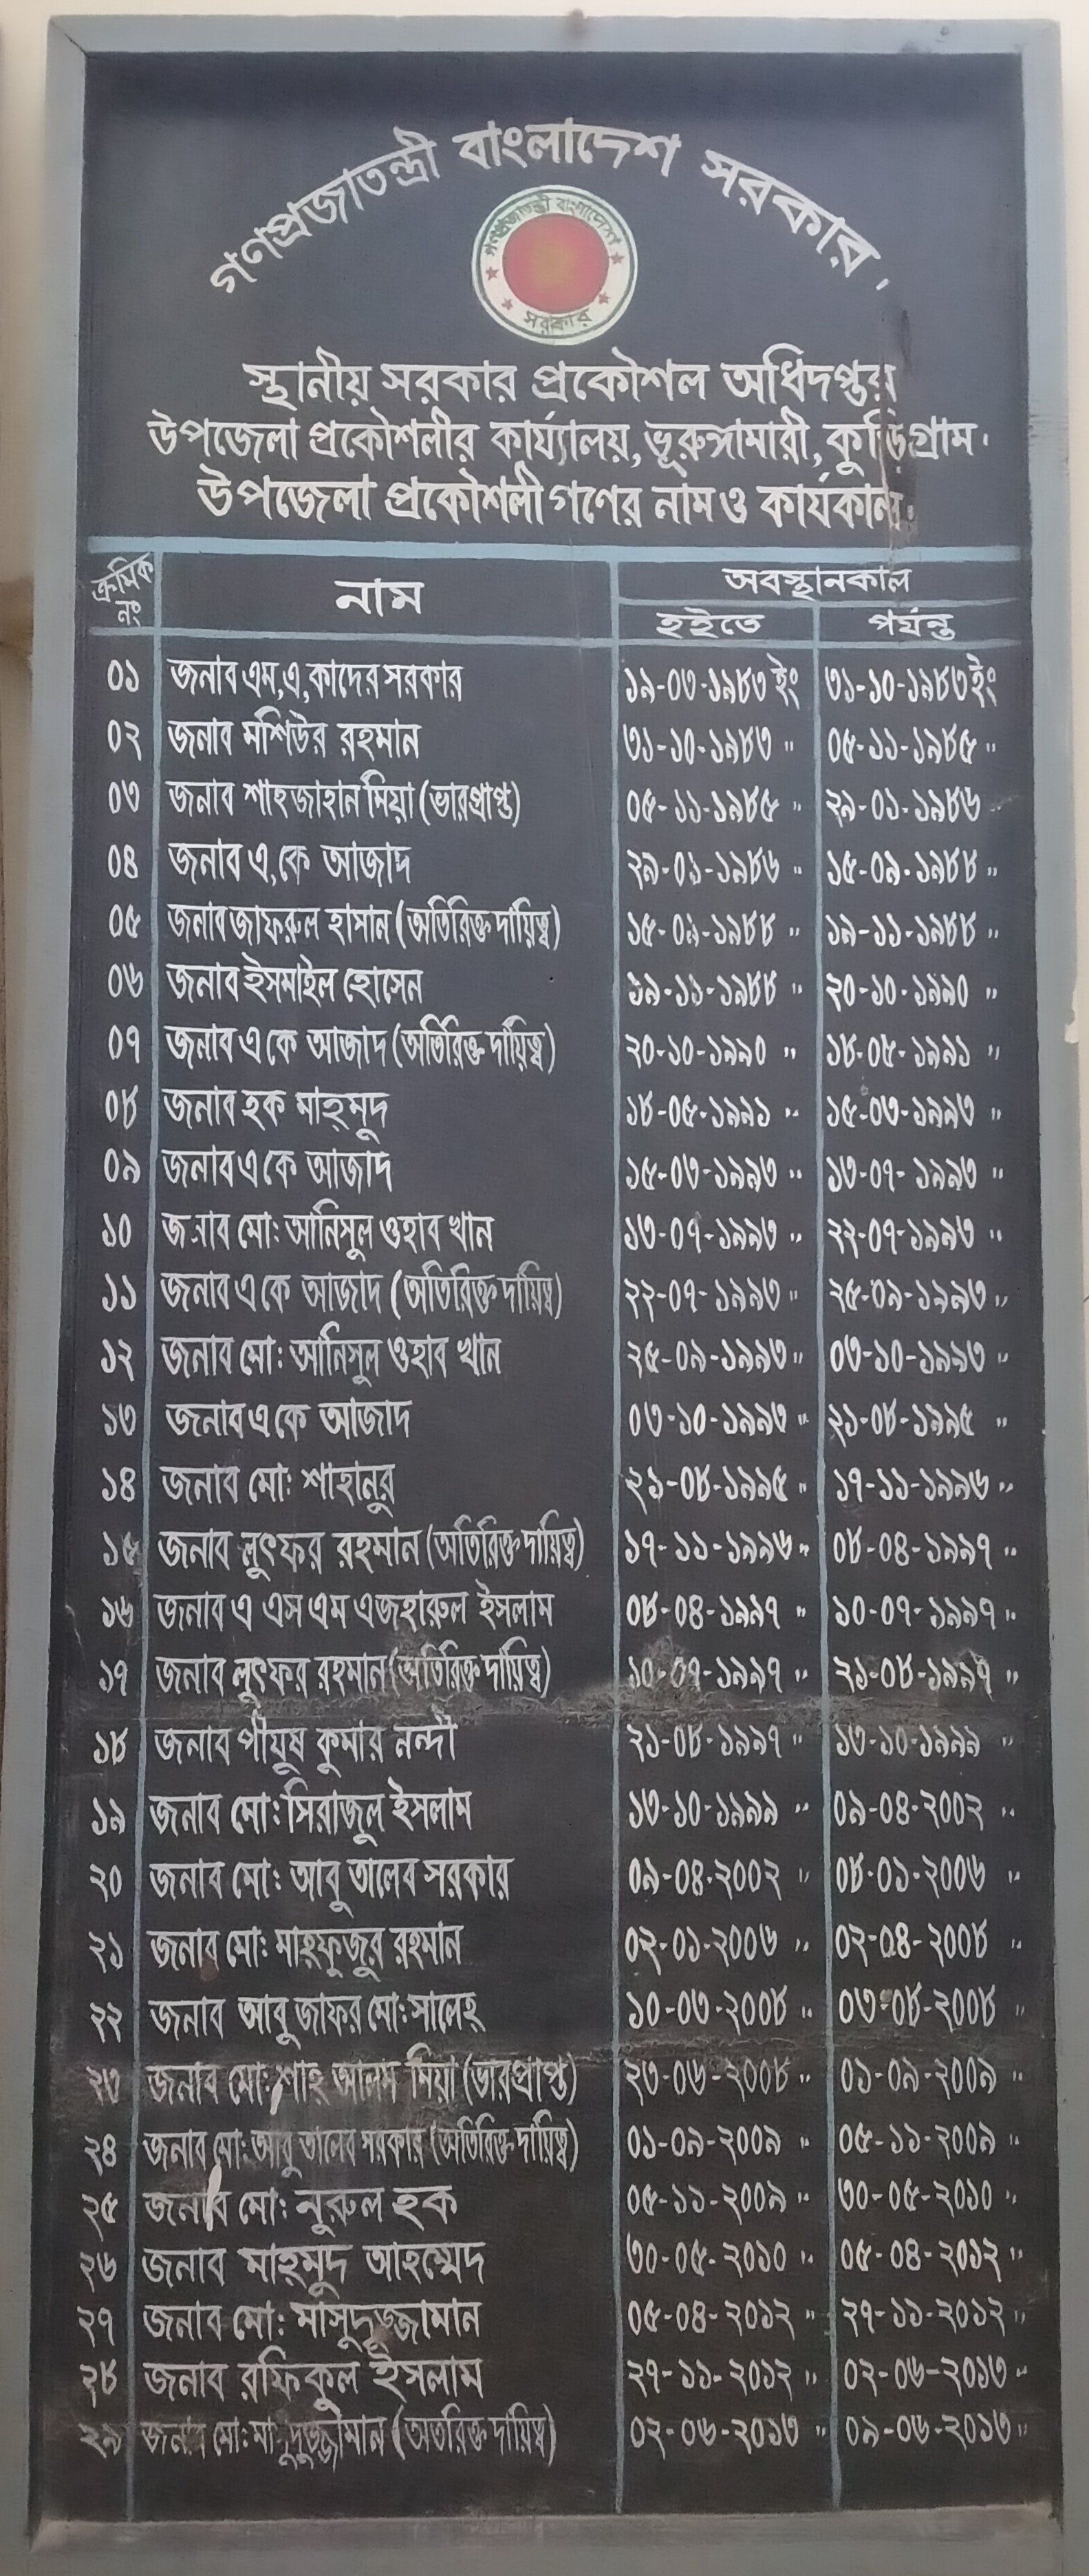 গণপ্রজাতন্ত্রী বাংলাদেশ সরকার
গণপ্রজাতন্ত্রী বাংলাদেশ
সরকার
স্থানীয় সরকার প্রকৌশল অধিদপ্তর
উপজেলা প্রকৌশলীর কার্য্যালয়, ভূরুঙ্গামারী, কুড়িগ্রাম।
উপজেলা প্রকৌশলীগণের নাম ও কার্যকাল।
ক্রমিক নং নাম অবস্থানকাল
হইতে পর্যন্ত
০১ জনাব এম,এ,কাদের সরকার ১৯-০৩-১৯৮৩ইং ৩১-১০-১৯৮৩ইং
০২ জনাব মশিউর রহমান ৩১-১০-১৯৮৩ " ০৫-১১-১৯৮৫ "
০৩ জনাব শাহজাহান মিয়া (ভারপ্রাপ্ত) ০৫-১১-১৯৮৫ " ২৯-০১-১৯৮৬ "
০৪ জনাব এ,কে আজাদ ২৯-০১-১৯৮৬ " ১৫-০৯-১৯৮৮ "
০৫ জনাব জাফরুল হাসান (অতিরিক্ত দায়িত্ব) ১৫-০৯-১৯৮৮ " ১৯-১১-১৯৮৮ "
০৬ জনাব ইসমাইল হোসেন ১৯-১১-১৯৮৮ " ২০-১০-১৯৯০ "
০৭ জনাব এ কে আজাদ (অতিরিক্ত দায়িত্ব) ২০-১০-১৯৯০ " ১৮-০৫-১৯৯১ "
০৮ জনাব হক মাহ্‌মুদ ১৮-০৫-১৯৯১ " ১৫-০৩-১৯৯৩ "
০৯ জনাব এ কে আজাদ ১৫-০৩-১৯৯৩ " ১৩-০৭-১৯৯৩ "
১০ জনাব মো: আনিসুল ওহাব খান ১৩-০৭-১৯৯৩ " ২২-০৭-১৯৯৩ "
১১ জনাব এ কে আজাদ (অতিরিক্ত দায়িত্ব) ২২-০৭-১৯৯৩ " ২৫-০৯-১৯৯৩ "
১২ জনাব মো: আনিসুল ওহাব খান ২৫-০৯-১৯৯৩ " ০৩-১০-১৯৯৩ "
১৩ জনাব এ কে আজাদ ০৩-১০-১৯৯৩ " ২১-০৮-১৯৯৫ "
১৪ জনাব মো: শাহানুর ২১-০৮-১৯৯৫ " ১৭-১১-১৯৯৬ "
১৫ জনাব লুৎফর রহমান (অতিরিক্ত দায়িত্ব) ১৭-১১-১৯৯৬ " ০৮-০৪-১৯৯৭ "
১৬ জনাব এ এস এম এজহারুল ইসলাম ০৮-০৪-১৯৯৭ " ১০-০৭-১৯৯৭ "
১৭ জনাব লুৎফর রহমান (অতিরিক্ত দায়িত্ব) ১০-০৭-১৯৯৭ " ২১-০৮-১৯৯৭ "
১৮ জনাব পীযুষ কুমার নন্দী ২১-০৮-১৯৯৭ " ১৩-১০-১৯৯৯ "
১৯ জনাব মো: সিরাজুল ইসলাম ১৩-১০-১৯৯৯ " ০৯-০৪-২০০২ "
২০ জনাব মো: আবু তালেব সরকার ০৯-০৪-২০০২ " ০৮-০১-২০০৬ "
২১ জনাব মো: মাহফুজুর রহমান ০২-০১-২০০৬ " ০২-০৪-২০০৮ "
২২ জনাব আবু জাফর মো: সালেহ ১০-০৩-২০০৮ " ০৩-০৮-২০০৮ "
২৩ জনাব মো: শাহ আলম মিয়া (ভারপ্রাপ্ত) ২৩-০৬-২০০৮ " ০১-০৯-২০০৯ "
২৪ জনাব মো: আবু তালেব সরকার (অতিরিক্ত দায়িত্ব) ০১-০৯-২০০৯ " ০৫-১১-২০০৯ "
২৫ জনাব মো: নুরুল হক ০৫-১১-২০০৯ " ৩০-০৫-২০১০ "
২৬ জনাব মাহমুদ আহম্মেদ ৩০-০৫-২০১০ " ০৫-০৪-২০১২ "
২৭ জনাব মো: মাসুদুজ্জামান ০৫-০৪-২০১২ " ২৭-১১-২০১২ "
২৮ জনাব রফিকুল ইসলাম ২৭-১১-২০১২ " ০২-০৬-২০১৩ "
২৯ জনাব মো: (অতিরিক্ত দায়িত্ব) ০২-০৬-২০১৩ " ০৯-০৬-২০১৩ "